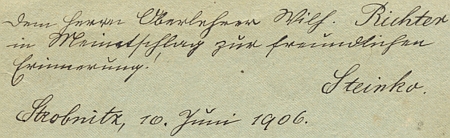 Dem Herrn Oberlehrer Wilh. Richter
in Meinetschlag zur freundlichen
Erinnerung!
Steinko.
Strobnitz, 10. Juni 1906.